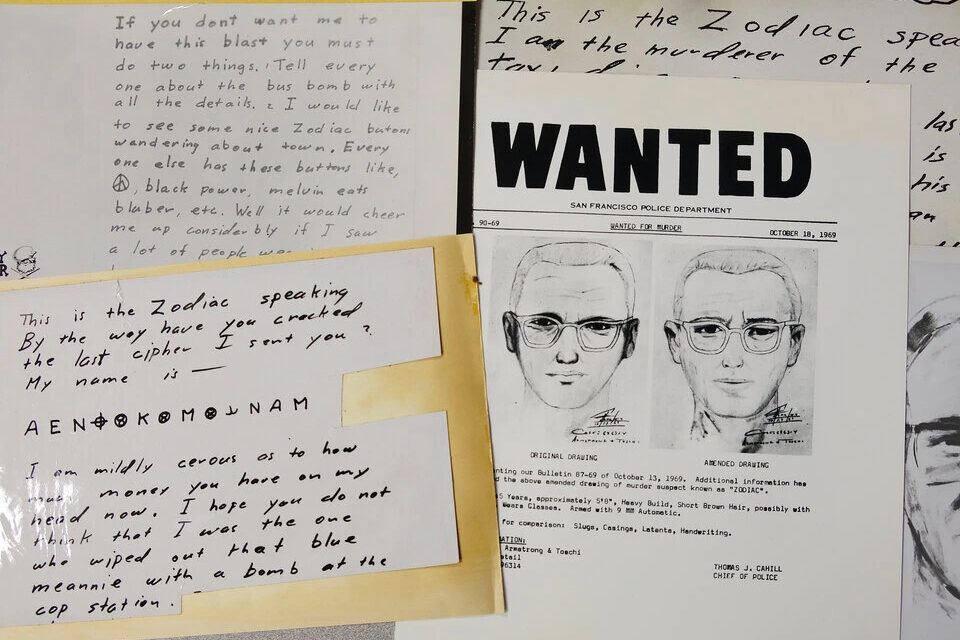 If you dont want me to
have this blast you must
do two things. Tell every
one about the bus bomb with
all the details. 2 I would like
to see some nice Zodiac butons
wandering about town. Every
one else has these buttons like,
☮, black power, melvin eats
bluber, etc. Well it would cheer
me up considerbly if I saw
a lot of people
This is the Zodiac speaking
By the way have you cracked
the last cipher I sent you?
My name is —
A E N ⌖ ⊗ K ⊗ M ⊗ ⅃ N A M
I am mildly cerous as to how
much money you have on my
head now. I hope you do not
think that I was the one
who wiped out that blue
meannie with a bomb at the
cop station.
This is the Zodiac spea
I am the murderer of the
las
is
his
WANTED
SAN FRANCISCO POLICE DEPARTMENT
90-69 WANTED FOR MURDER OCTOBER 18, 1969
ORIGINAL DRAWING AMENDED DRAWING
nting our Bulletin 87-69 of October 13, 1969. Additional information has
d the above amended drawing of murder suspect known as "ZODIAC".
5 Years, approximately 5'8", Heavy Build, Short Brown Hair, possibly with
Wears Glasses. Armed with 9 MM Automatic.
for comparison: Slugs, Casings, Latents, Handwriting.
ATION:
Armstrong & Toschi
etail
96314
THOMAS J. CAHILL
CHIEF OF POLICE